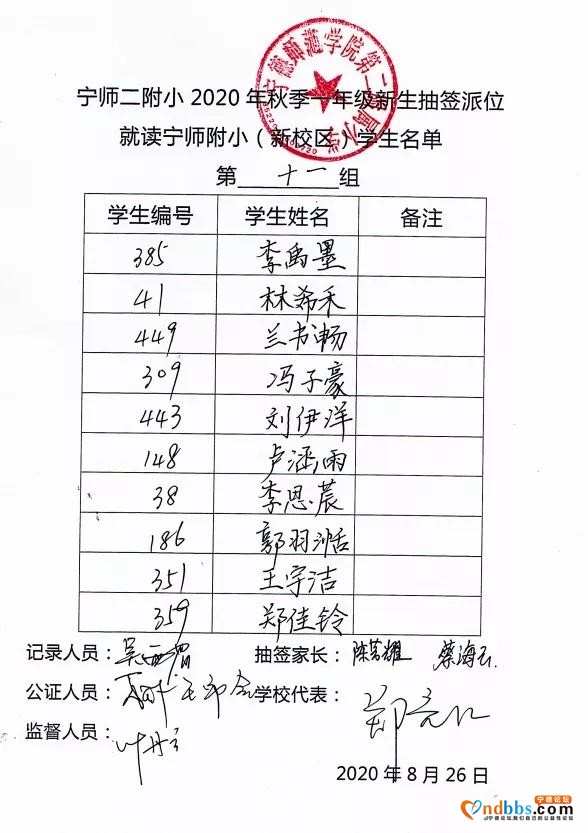 宁德师范学院第二附属小学
宁师二附小 2020 年秋季一年级新生抽签派位
就读宁师附小（新校区）学生名单
第 十一 组
学生编号 学生姓名 备注
385 李禹墨
41 林希禾
449 兰书畅
309 冯子豪
443 刘伊洋
148 卢涵雨
38 李思莀
186 郭羽湉
351 王宇洁
359 郑佳铃
记录人员： 抽签家长： 蔡海云
公证人员： 学校代表：
监督人员：
2020 年 8 月 26 日
宁德论坛
ndbbs.com